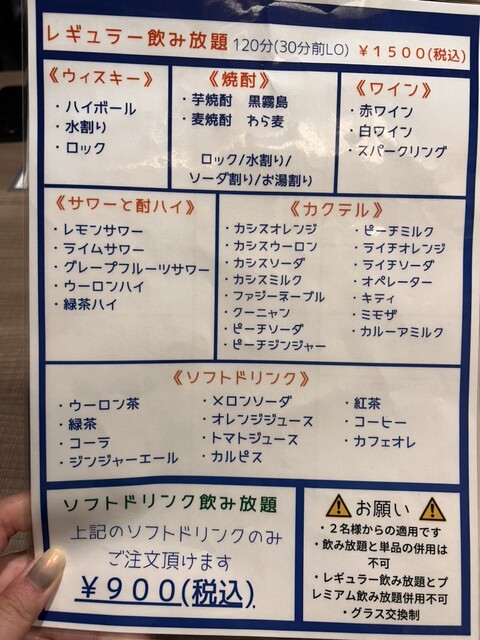 レギュラー飲み放題 120分(30分前LO) ￥1500(税込)
《ウィスキー》
・ハイボール
・水割り
・ロック
《焼酎》
・芋焼酎 黒霧島
・麦焼酎 わら麦
ロック/水割り/
ソーダ割り/お湯割り
《ワイン》
・赤ワイン
・白ワイン
・スパークリング
《サワーと酎ハイ》
・レモンサワー
・ライムサワー
・グレープフルーツサワー
・ウーロンハイ
・緑茶ハイ
《カクテル》
・カシスオレンジ
・カシスウーロン
・カシスソーダ
・カシスミルク
・ファジーネーブル
・クーニャン
・ピーチソーダ
・ピーチジンジャー
・ピーチミルク
・ライチオレンジ
・ライチソーダ
・オペレーター
・キティ
・ミモザ
・カルーアミルク
《ソフトドリンク》
・ウーロン茶
・緑茶
・コーラ
・ジンジャーエール
・メロンソーダ
・オレンジジュース
・トマトジュース
・カルピス
・紅茶
・コーヒー
・カフェオレ
ソフトドリンク飲み放題
上記のソフトドリンクのみ
ご注文頂けます
￥900(税込)
⚠お願い⚠
・２名様からの適用です
・飲み放題と単品の併用は
不可
・レギュラー飲み放題とプ
レミアム飲み放題併用不可
・グラス交換制